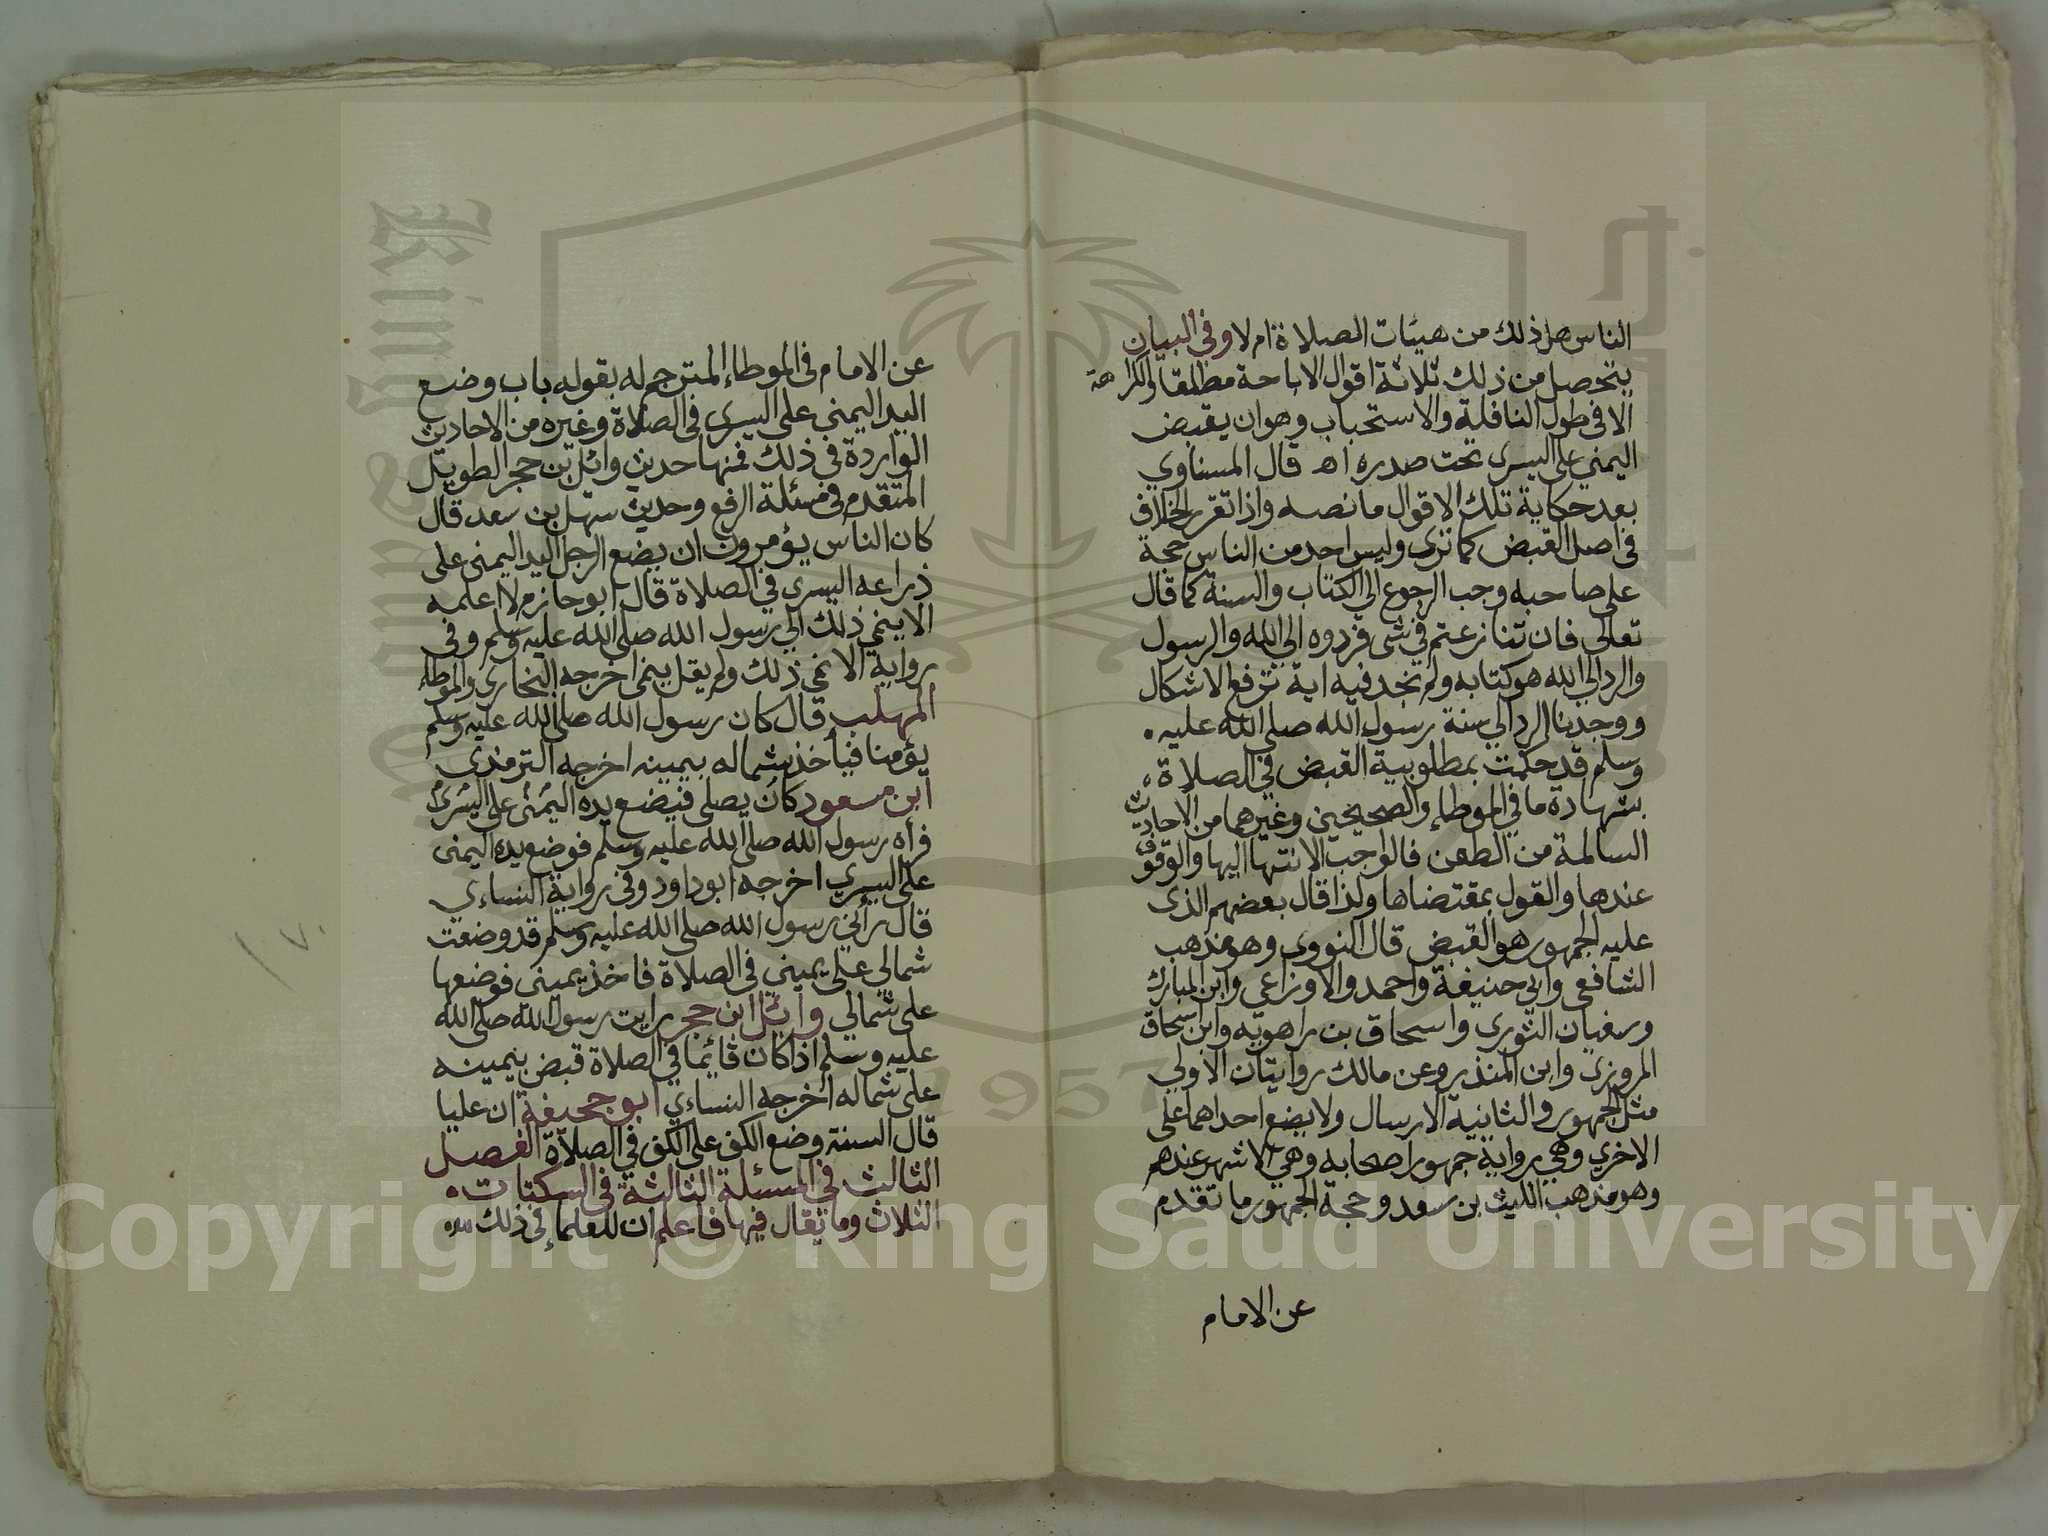 الناس هل ذلك من هيئات الصلاة ام لا وفي البيان
يتحصل من ذلك ثلاثة اقوال الاباحة مطلقا والكراهة
الا في طول النافلة والاستحباب وهو ان يقبض
اليمني على اليسرى تحت صدره اه قال المسناوي
بعد حكاية تلك الاقوال ما نصه واذا تقرر الخلاف
في اصل القبض كما ترى وليس احد من الناس حجة
على صاحبه وجب الرجوع الى الكتاب والسنة كما قال
تعالى فان تنازعتم في شئ فردوه الى الله والرسول
والرد الى الله هو كتابه ولم نجد فيه اية ترفع الاشكال
ووجدنا الرد الى سنة رسول الله صلى الله عليه
وسلم قد حكمت بمطلوبية القبض في الصلاة
بشهادة ما في الموطاء والصحيحين وغيرهما من الاحاديث
السالمة من الطعن فالواجب الانتها اليها والوقوف
عندها والقول بمقتضاها ولذا قال بعضهم الذى
عليه الجمهور هو القبض قال النووى وهو مذهب
الشافعى وابي حنيفة واحمد والاوزاعي وابن المبارك
وسفيان الثورى واسحاق بن راهويه وابن اسحاق
المروزى وابن المنذر وعن مالك روايتان الاولي
مثل الجمهور والثانية الارسال ولا يضع احداهما على
الاخري وهي رواية جمهور اصحابه وهي الاشهر عندهم
وهو مذهب الليث بن سعد وحجة الجمهور ما تقدم
عن الامام
عن الامام في الموطاء المترجم له بقوله باب وضع
اليد اليمني على اليسرى في الصلاة وغيره من الاحاديث
الواردة في ذلك فمنها حديث وائل بن حجر الطويل
المتقدم في مسئلة الرفع وحديث سهل بن سعد قال
كان الناس يؤمرون ان يضع الرجل اليد اليمنى على
ذراعه اليسرى في الصلاة قال ابو حازم لا اعلمه
الا ينمي ذلك الي رسول الله صلى الله عليه وسلم وفى
رواية الا نمي ذلك ولم يقل ينمى اخرجه البخاري والموطاء
المهلب قال كان رسول الله صلى الله عليه وسلم
يؤمنا فيأخذ شماله بيمينه اخرجه الترمذى
ابن مسعود كان يصلى فيضع يده اليمنى على اليسرى
فرأه رسول الله صلى الله عليه وسلم فوضع يده اليمنى
على اليسرى اخرجه ابو داود وفى رواية النساءي
قال رأني رسول الله صلى الله عليه وسلم قد وضعت
شمالي على يميني في الصلاة فاخذ يميني فوضعها
على شمالي وائل ابن حجر رايت رسول الله صلى الله
عليه وسلم اذا كان قائما في الصلاة قبض بيمينه
على شماله اخرجه النساءي ابو جحيفة ان عليا
قال السنة وضع الكف على الكف في الصلاة الفصل
الثالث في المسئلة الثالثة في السكتات
الثلاث وما يقال فيها فاعلم ان للعلماء في ذلك
Copyright © King Saud University
1957